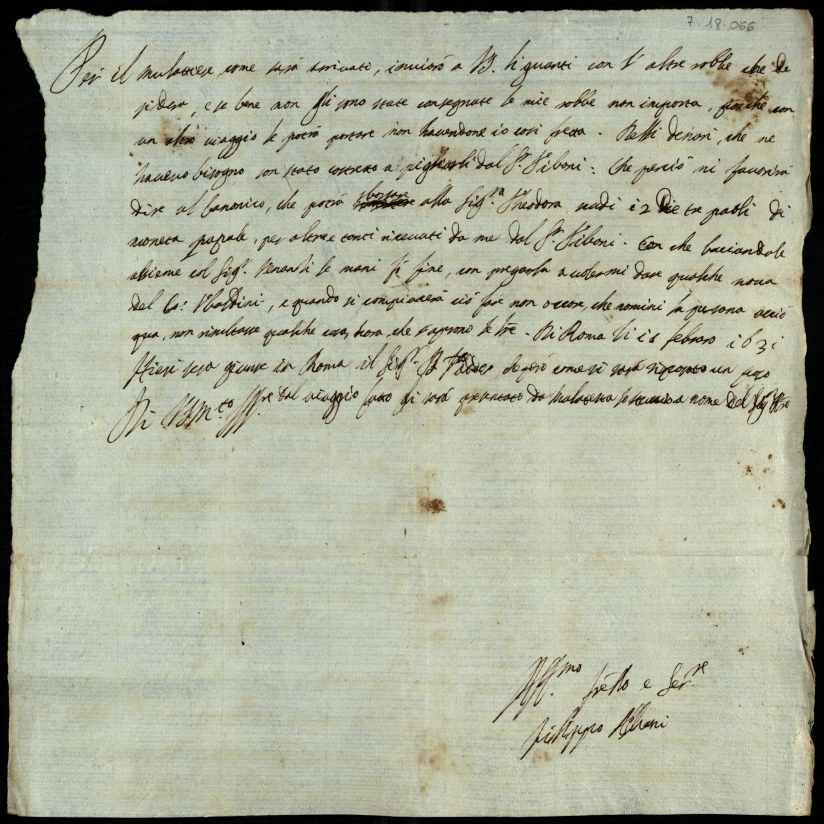 7-18-066
Per il mulattiere, come sarà arrivato, inviarò a V.S. li guanti con l'altre robbe che de
sidera, e se bene non gli sono state consegnate le mie robbe non importa, perche con
un altro viaggio le potrà portare non havendone io così fretta. Delli denari, che ne
havevo bisogno son stato costretto a pigliarli dal Sr. Siboni: Che perciò mi favorirà
dire al Canonico, che potrà sborsare alla Sigra. Theodora scudi 12 e tre paoli di
moneta papale, per altre e tanti ricevuti da me dal Sr. Siboni. Con che baciandole
assieme col Sigr. le mani fo fine, con pregarla a volermi dare qualche nova
del e quando si compiacerà ciò fare non occore, che nomini la persona acciò
qua, non risultasse qualche cosa, hora, che s'aprono le lre. Di Roma li febraro 1631
Hieri sera giunse in Roma il Sigr. come si sarà riposato un poco
Di V.S. dal viaggio fatto gli sarà presentato da a nome del
Affmo fratello e Serre
Filippo Albani